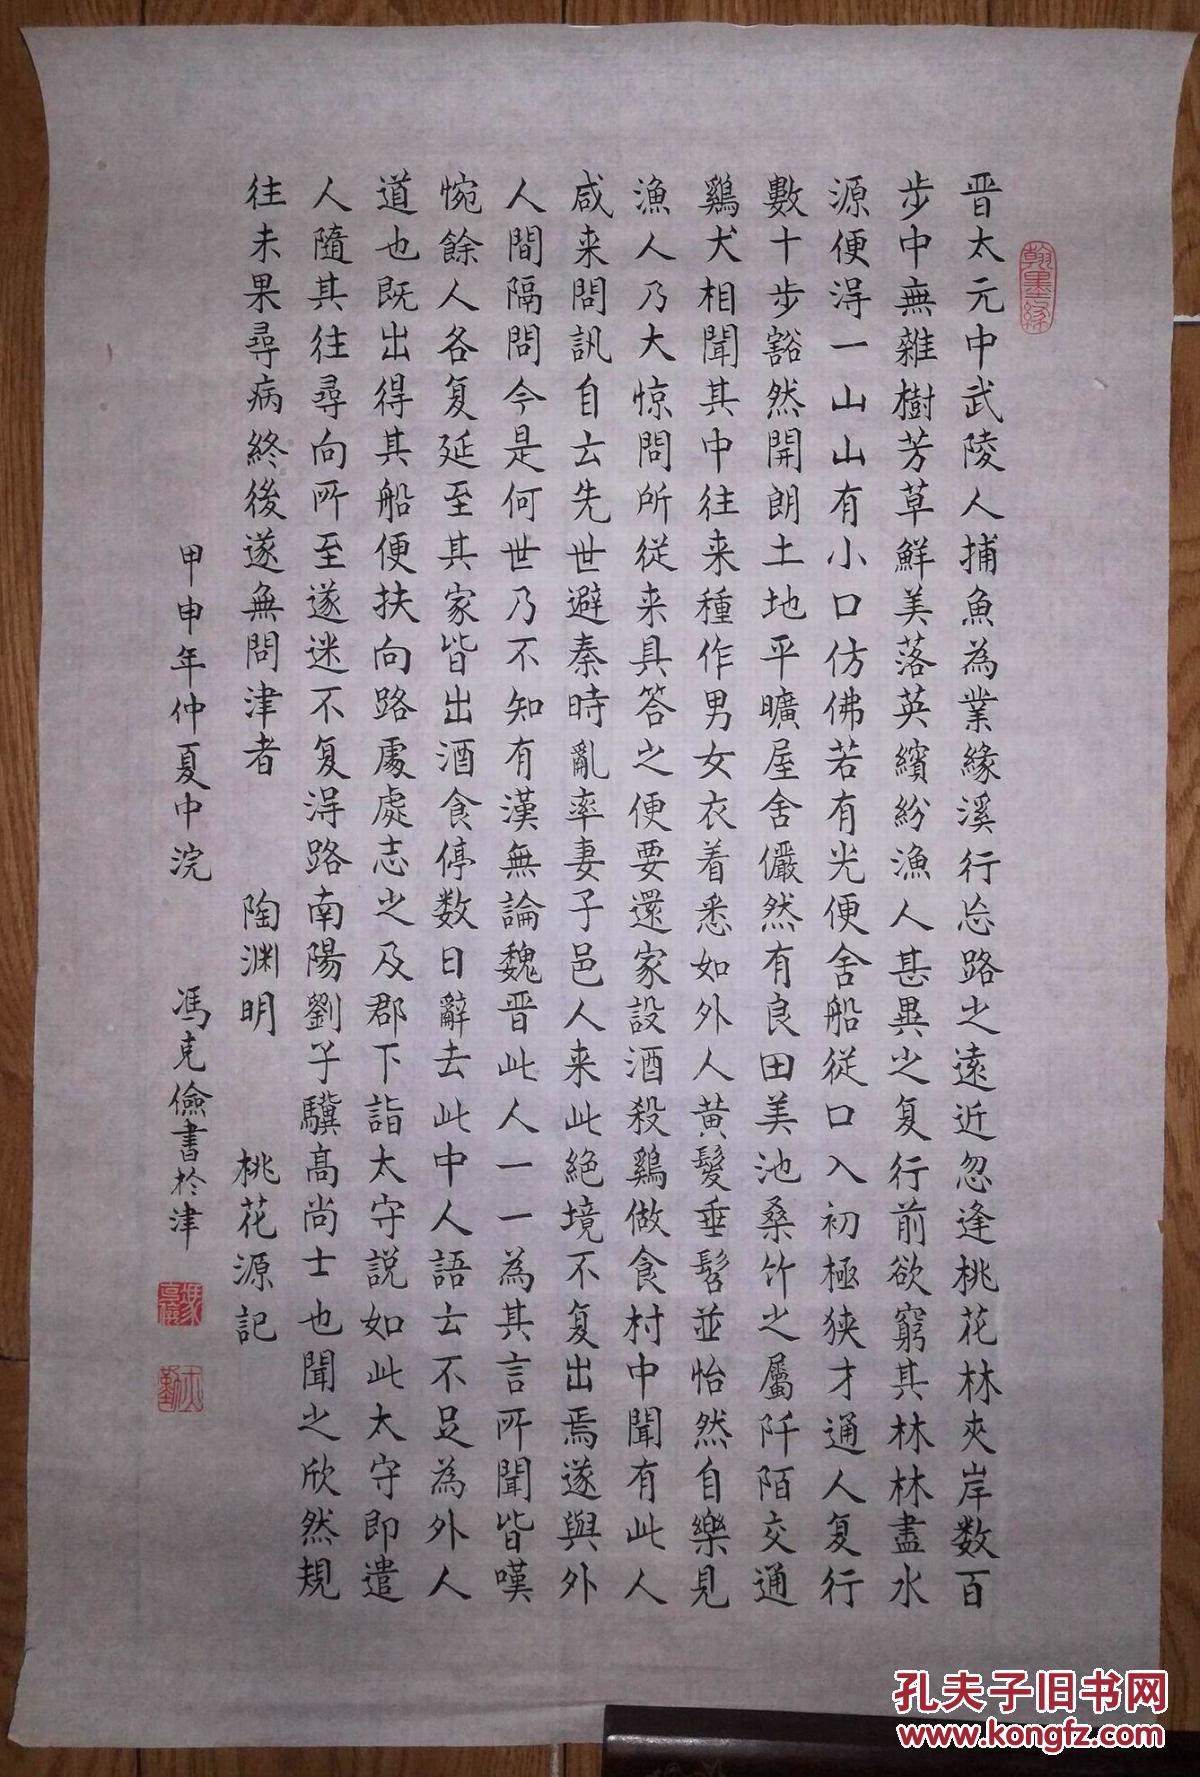 翰墨緣
晋太元中武陵人捕魚為業緣溪行忘路之遠近忽逢桃花林夾岸数百
步中無雜樹芳草鮮美落英繽紛漁人甚異之复行前欲窮其林林盡水
源便得一山山有小口仿佛若有光便舍船從口入初極狹才通人复行
數十步豁然開朗土地平曠屋舍儼然有良田美池桑竹之屬阡陌交通
鷄犬相聞其中往来種作男女衣着悉如外人黄髮垂髫並怡然自樂見
漁人乃大惊問所從来具答之便要還家設酒殺鷄做食村中聞有此人
咸来問訊自云先世避秦時亂率妻子邑人来此絕境不复出焉遂與外
人間隔問今是何世乃不知有漢無論魏晋此人一一為其言所聞皆嘆
惋餘人各复延至其家皆出酒食停数日辭去此中人語云不足為外人
道也既出得其船便扶向路處處志之及郡下詣太守説如此太守即遣
人隨其往尋向所至遂迷不复得路南陽劉子驥高尚士也聞之欣然規
往未果尋病終後遂無問津者 陶渊明 桃花源記
甲申年仲夏中浣 馮克儉書於津
孔夫子旧书网
www.kongfz.com